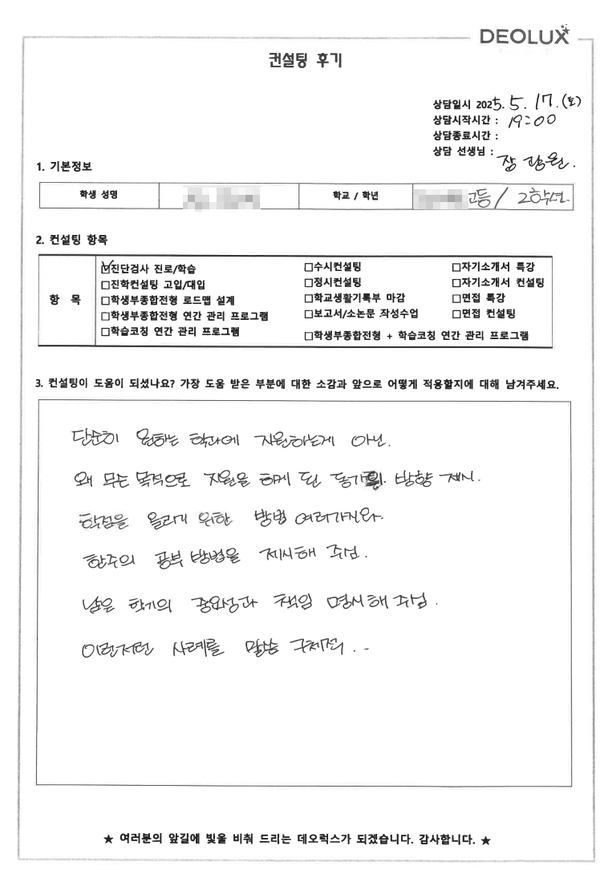 DEOLUX
컨설팅 후기
상담일시 2025. 5. 17. (토)
상담시작시간 : 19:00
상담종료시간 :
상담 선생님 :
1. 기본정보
학생 성명 학교 / 학년 고등 / 2학년
2. 컨설팅 항목
항 목
☑진단검사 진로/학습 □수시컨설팅 □자기소개서 특강
□진학컨설팅 고입/대입 □정시컨설팅 □자기소개서 컨설팅
□학생부종합전형 로드맵 설계 □학교생활기록부 마감 □면접 특강
□학생부종합전형 연간 관리 프로그램 □보고서/소논문 작성수업 □면접 컨설팅
□학습코칭 연간 관리 프로그램 □학생부종합전형 + 학습코칭 연간 관리 프로그램
3. 컨설팅이 도움이 되셨나요? 가장 도움 받은 부분에 대한 소감과 앞으로 어떻게 적용할지에 대해 남겨주세요.
단순히 원하는 학과에 지원하는게 아닌.
왜 무슨 목적으로 지원을 하게 된 동기 방향 제시.
학점을 올리기 위한 방법 여러가지와.
한주의 공부 방법을 제시해 주심.
남은 학기의 중요성과 책임 명시해 주심.
이런저런 사례를 말씀 구체적. . -
★ 여러분의 앞길에 빛을 비춰 드리는 데오럭스가 되겠습니다. 감사합니다. ★